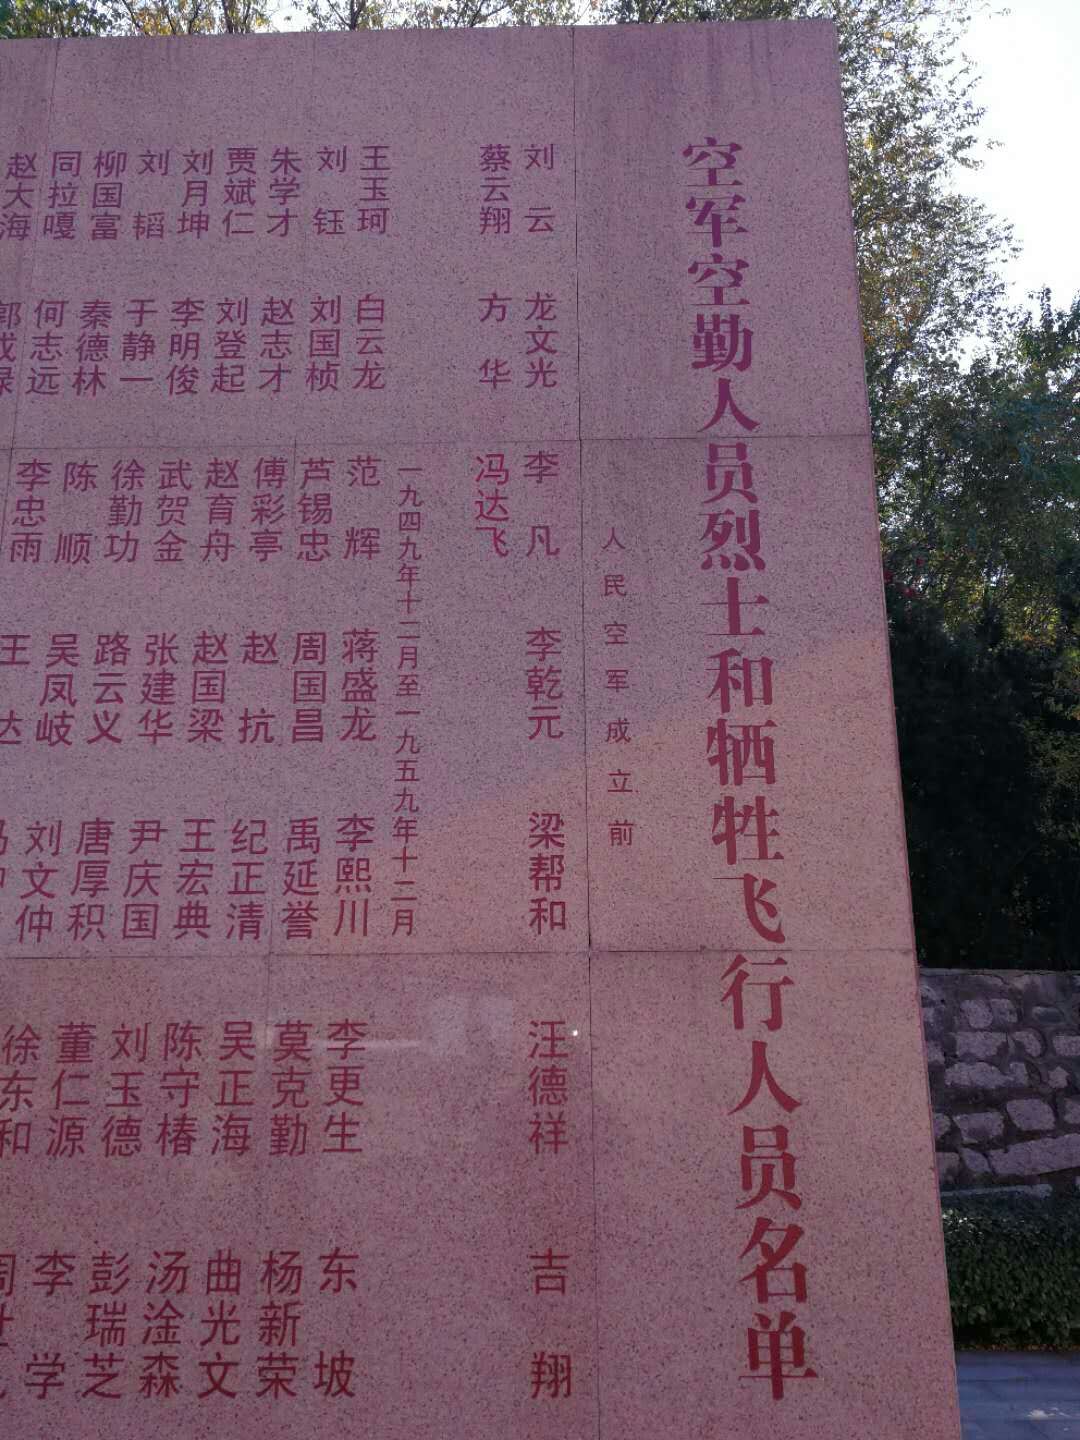 空军空勤人员烈士和牺牲飞行人员名单
人民空军成立前
刘云 龙文光 李凡 李乾元 梁帮和 汪德祥 吉翔
蔡云翔 方华 冯达飞
一九四九年十二月至一九五九年十二月
王玉珂 白云龙 范辉 蒋盛龙 李熙川 李更生 东坡
刘钰 刘国桢 芦锡忠 周国昌 禹延誉 莫克勤 杨新荣
朱学才 赵志才 傅彩亭 赵抗 纪正清 吴正海 曲光文
贾斌仁 刘登起 赵育舟 赵国梁 王宏典 陈守椿 汤淦森
刘月坤 李明俊 武贺金 张建华 尹庆国 刘玉德 彭瑞芝
刘韬 于静一 徐勤功 路云义 唐厚积 董仁源 李学
柳国富 秦德林 陈顺 吴凤岐 刘文仲 徐东和
同拉嘎 何志远 李忠雨 王达
赵大海